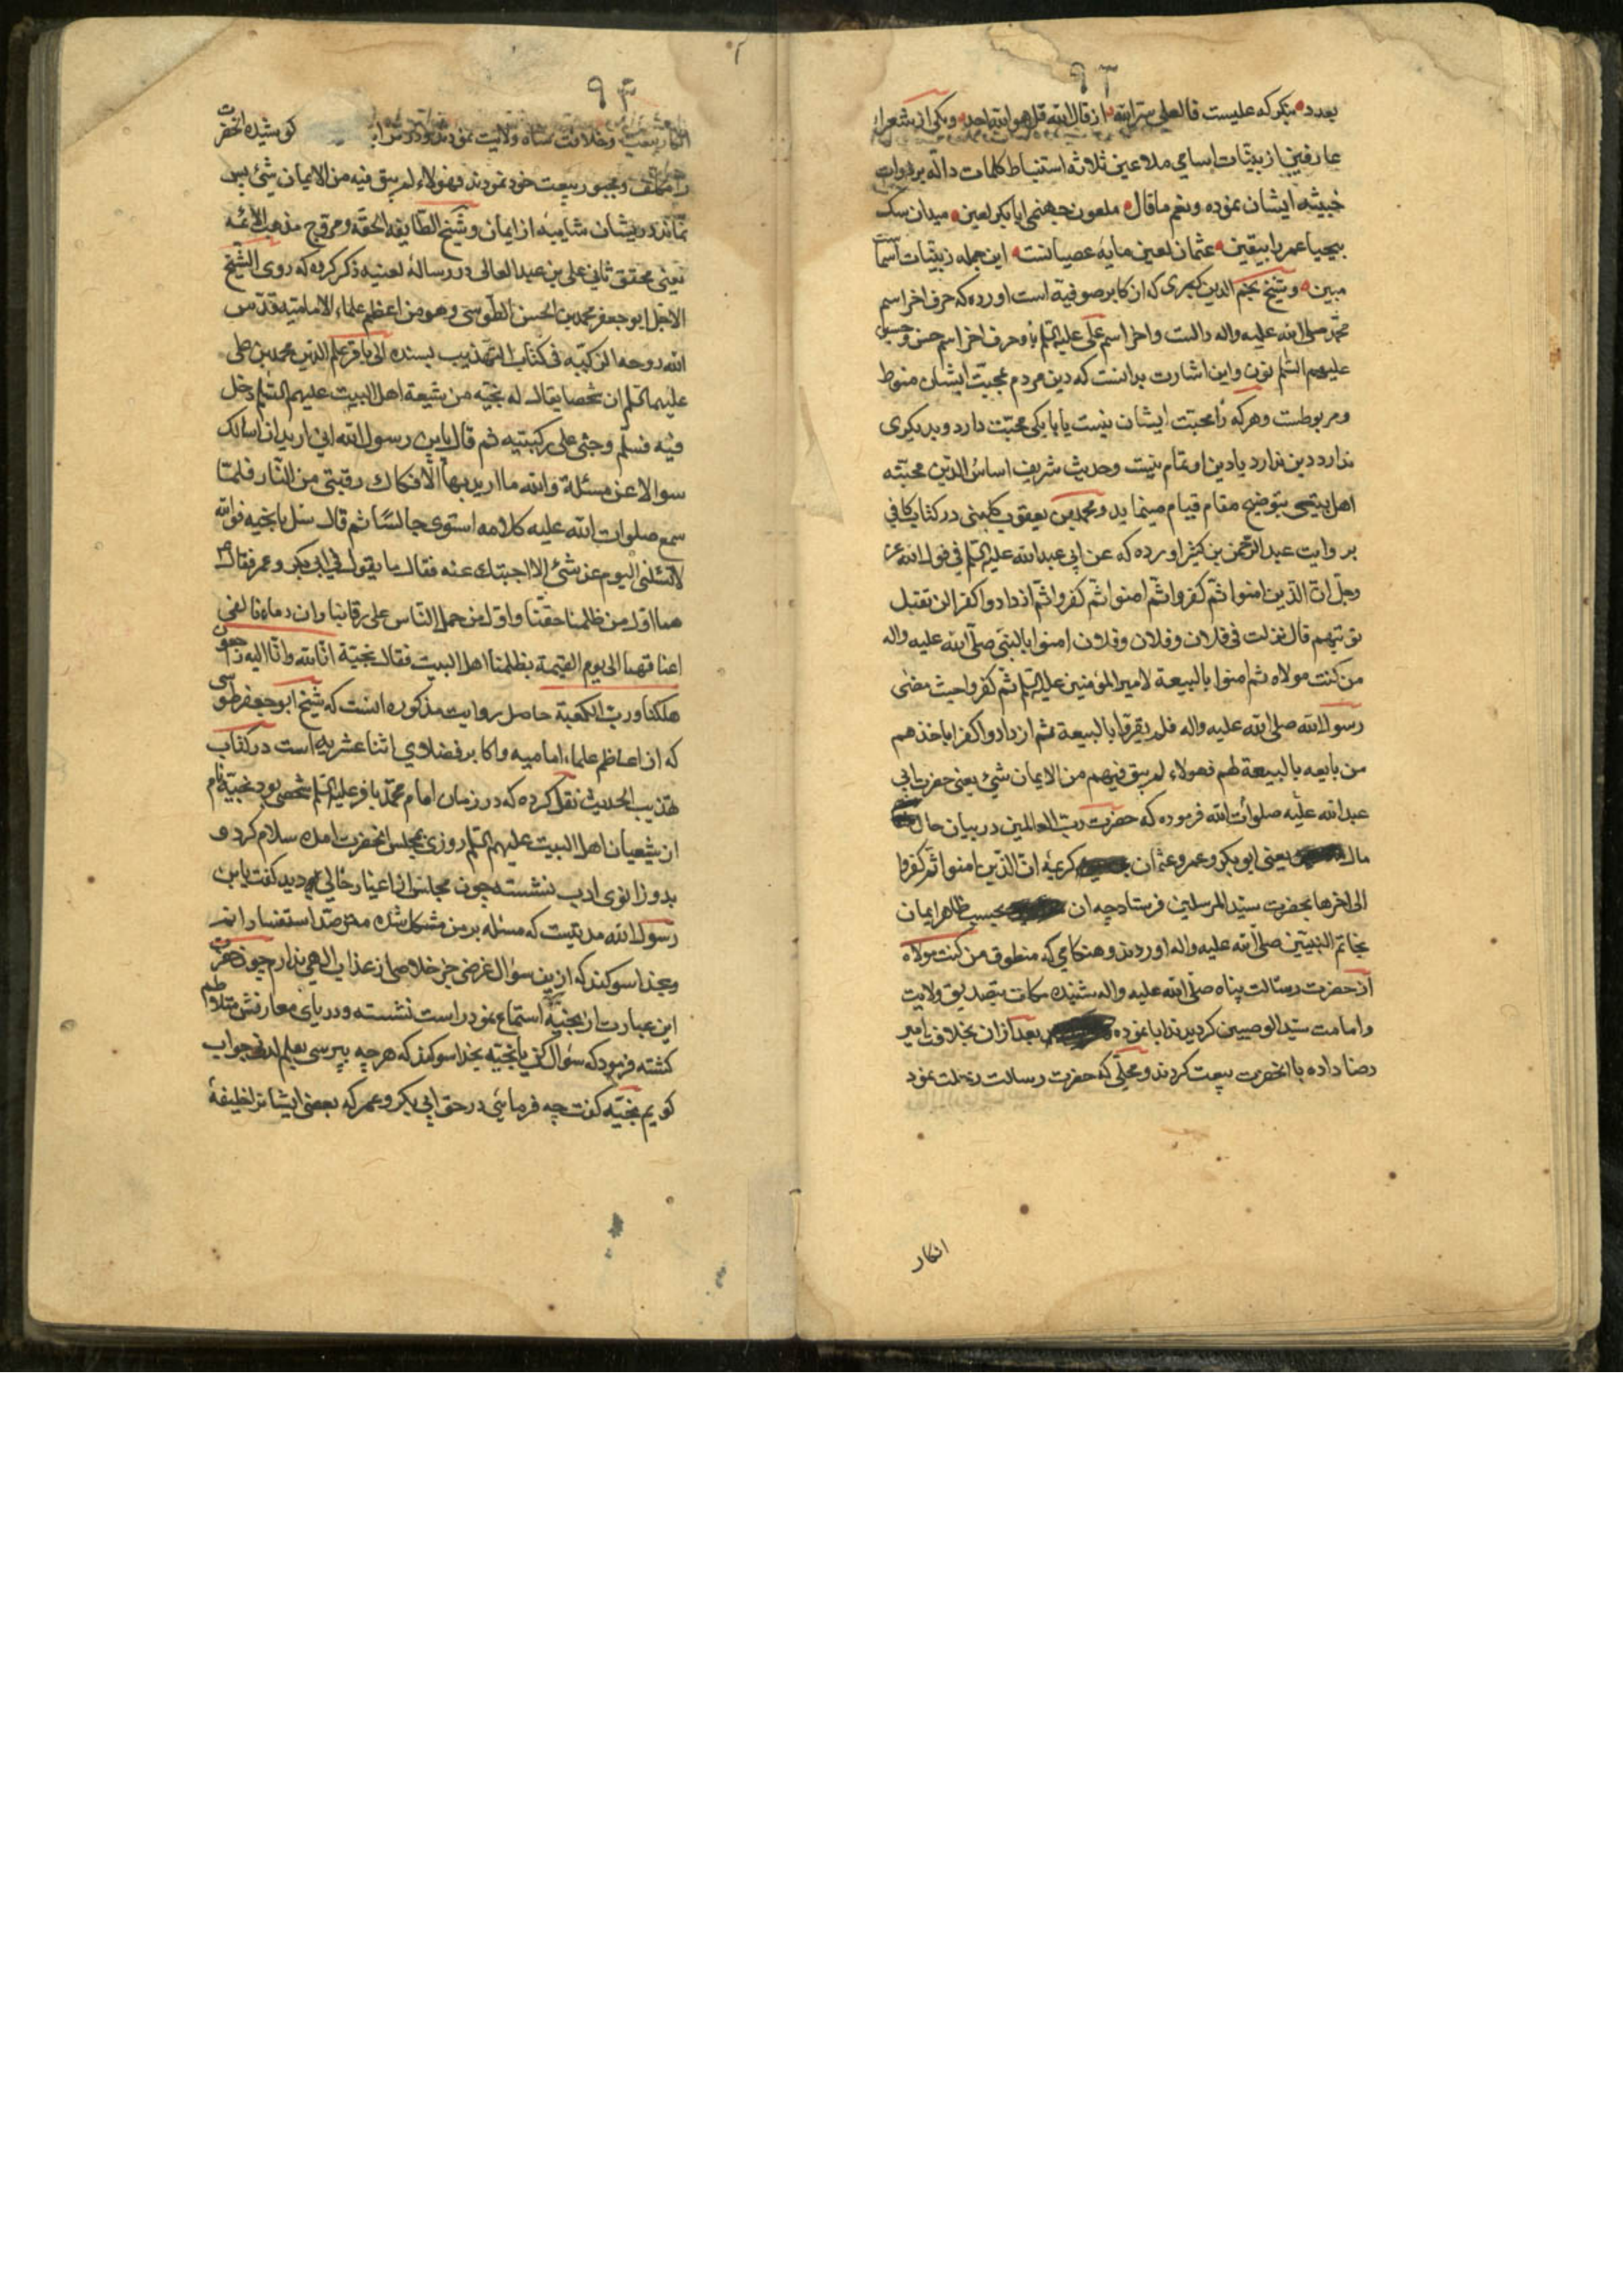 ۹۲
بعدد بنکر که علیست قال علی سر الله از قال الله قل هو الله احد ویکی از شعراء
عارفین از بینات اسامی ملاعین ثلاثه استنباط کلمات داله بر ذوات
خبیثه ایشان نموده ونعم ما قال ملعون جهنمی ابابکر لعین میدان سک
بیحیا عمر را بیقین عثمان لعین مایه عصیانست این جمله ز بینات اسما
مبین وشیخ نجم الدین کبری که از کابر صوفیه است اورده که حرف اخر اسم
محمد صلی الله علیه واله دالست واخر اسم علی علیه السلم یا وحرف اخر اسم حسن وحسین
علیهم السلم نون واین اشارت بدانست که دین مردم بمحبت ایشان منوط
ومربوطست وهر که را محبت ایشان نیست یا با یکی محبت دارد وبدیکری
ندارد دین ندارد یا دین او تمام نیست وحدیث شریف اساس الدین محبته
اهل بیتی بتوضیح مقام قیام مینماید ومحمد بن یعقوب کلینی در کتاب کافی
بروایت عبد الرحمن بن کثیر اورده که عن ابی عبد الله علیه السلم فی قول الله عز
وجل ان الذین امنوا ثم کفروا ثم امنوا ثم کفروا ثم ازدادوا کفرا لن تقبل
توبتهم قال نزلت فی فلان وفلان وفلان امنوا بالنبی صلی الله علیه واله
من کنت مولاه ثم امنوا بالبیعة لامیر المؤمنین علیه السلم ثم کفروا حیث مضی
رسول الله صلی الله علیه واله فلم یقرقا بالبیعة ثم ازدادوا کفرا باخذهم
من بایعه بالبیعة لهم فهولاء لم یبق فیهم من الایمان شئ یعنی حضرت ابی
عبد الله علیه صلوات الله فرموده که حضرت رب العالمین در بیان حال
مال یعنی ابو بکر وعمر وعثمان کریمه ان الذین امنوا ثم کفروا
الی اخرها بحضرت سید المرسلین فرستاد چه ان بحسب ظاهر ایمان
بخاتم النبیین صلی الله علیه واله اوردند وهنکامی که منطوق من کنت مولاه
از حضرت رسالت پناه صلی الله علیه واله شنیدند بتصدیق ولایت
وامامت سید الوصیین کردیدند ابا نموده بعد ازان بخلافت امیر
رضا داده با انحضرت بیعت کردند ومحلی که حضرت رسالت رحلت نمود
انکار
۹۳
انکار بیعت وخلافت شاه ولایت نمودند کوشیده انحضرت
را مکلف ومجبور ببیعت خود نمودند فهولاء لم یبق فیه من الایمان شئ پس
نماند در یشان شایبه از ایمان وشیخ الطایفه الحقه ومروج مذهب الائمه
یعنی محقق ثانی علی بن عبد العالی در رسالهٔ لعنیه ذکر کرده که روی الشیخ
الاجل ابو جعفر محمد بن الحسن الطوسی وهو من اعظم علماء الامامیه قدس
الله روحه الزکیه فی کتاب التهذیب بسنده الی باقر علم الدین محمد بن علی
علیهما السلم ان شخصا یقال له نجیه من شیعة اهل البیت علیهم السلم دخل
فیه فسلم وجثی علی رکبتیه ثم قال یابن رسول الله انی ارید ان اسالک
سوالا عن مسئلة والله ما ارید بها الا فکاک رقبتی من النار فلما
سمع صلوات الله علیه کلامه استوی جالسا ثم قال سل یا نجیه فوالله
لا تسئلنی الیوم عن شئ الا اجبتک عنه فقال ما یقول فی ابی بکر وعمر فقال
هما اول من ظلمنا حقنا واول من حمل الناس علی رقابنا وان دماءنا لفی
اعناقهما الی یوم القیمة بظلمنا اهل البیت فقال نجیة انا لله وانا الیه راجعون
هلکنا ورب الکعبة حاصل روایت مذکوره انست که شیخ ابو جعفر طوسی
که از اعاظم علماء امامیه واکابر فضلای اثنا عشریه است در کتاب
تهذیب الحدیث نقل کرده که در زمان امام محمد باقر علیه السلم شخصی بود نجیة نام
از شیعیان اهل البیت علیهم السلم روزی بمجلس انحضرت امده سلام کرد و
بدو زانوی ادب نشسته چون مجلس از اغیار خالی دید کفت یابن
رسول الله مدتیست که مسئله بر من مشکل شده مترصد استفسار انم
وبخدا سوکند که ازین سؤال غرضی جز خلاصی از عذاب الهی ندارم چون حضرت
این عبارت از نجیة استماع نمود راست نشسته ودریای معارفش متلاطم
کشته فرمود که سؤال کن یا نجیه بخدا سوکند که هر چه بپرسی بعلم لدنی جواب
کویم نجیه کفت چه فرمائی در حق ابی بکر وعمر که بعضی ایشانرا خلیفهٔ